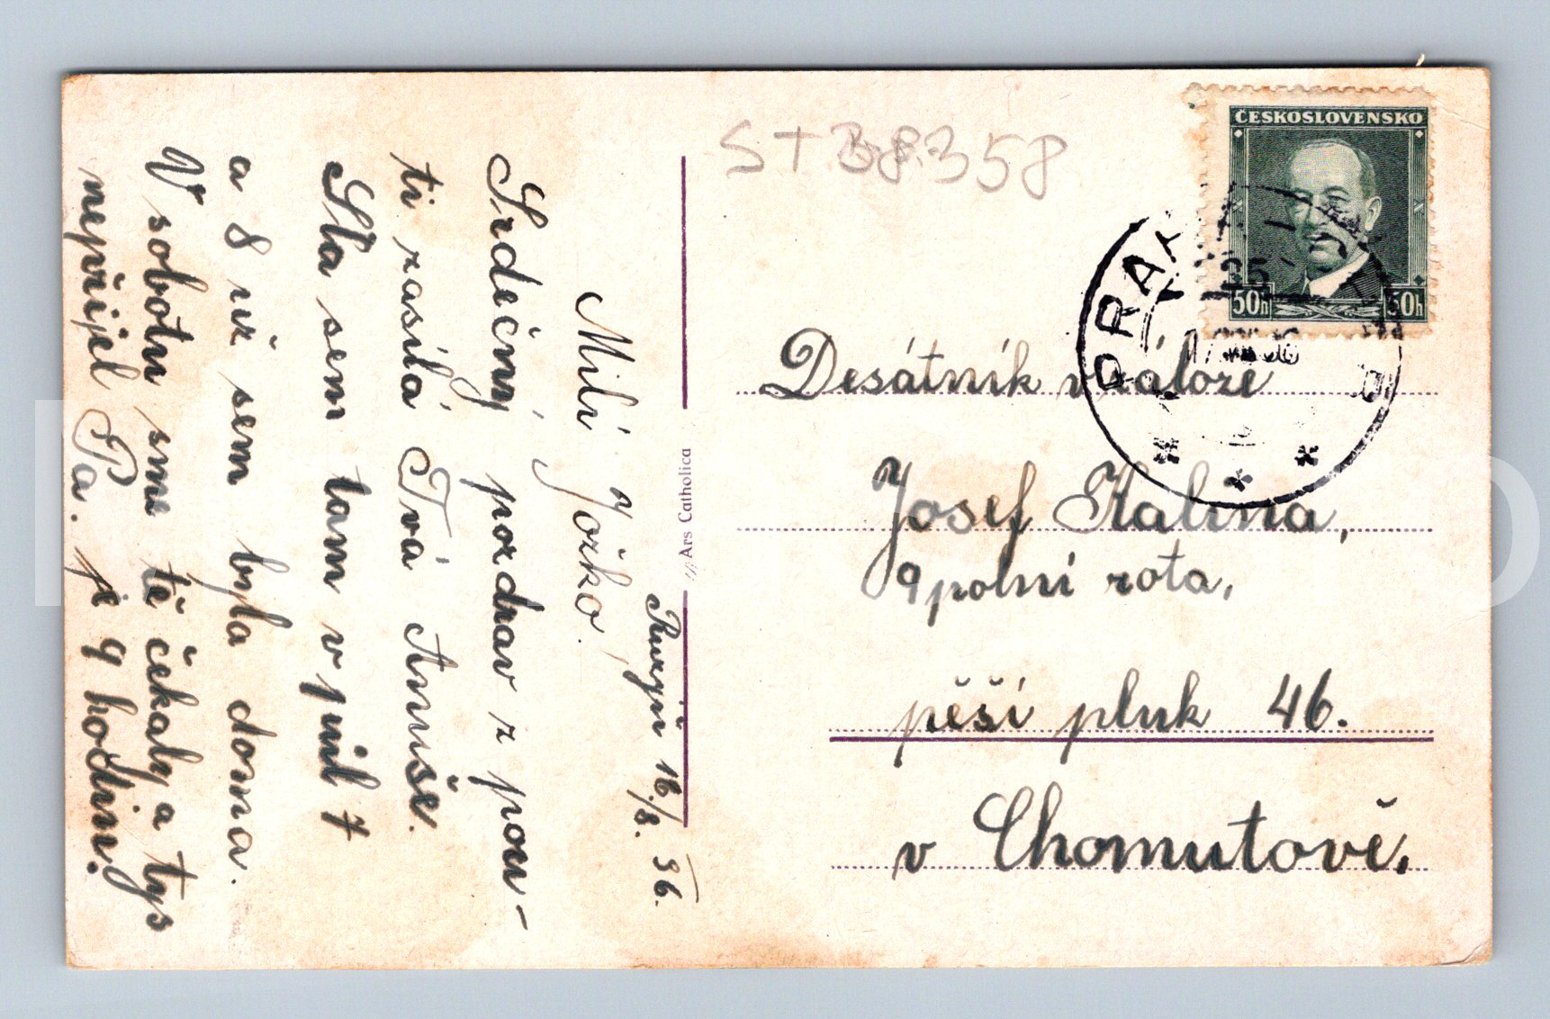 ST 38.358
ČESKOSLOVENSKO
50h 50h
PRAHA
Ruzyň 16./8. 36.
Milí Jožko.
Srdečný pozdrav z pou-
ti zasílá Tvá Anuše.
Sla sem tam v půl 7
a 8 už sem byla doma.
V sobotu sme tě čekaly a tys
nepřijel Pa. je 9 hodin.
Ars Catholica
Desátník v záloze
Josef Kalina,
9 polní rota,
pěší pluk 46.
v Chomutově.